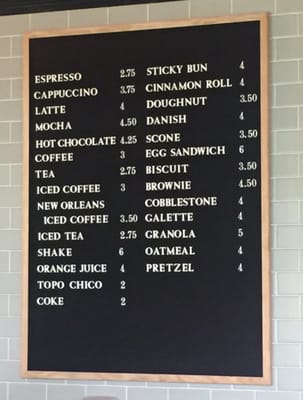 ESPRESSO 2.75
CAPPUCCINO 3.75
LATTE 4
MOCHA 4.50
HOT CHOCOLATE 4.25
COFFEE 3
TEA 2.75
ICED COFFEE 3
NEW ORLEANS
ICED COFFEE 3.50
ICED TEA 2.75
SHAKE 6
ORANGE JUICE 4
TOPO CHICO 2
COKE 2
STICKY BUN 4
CINNAMON ROLL 4
DOUGHNUT 3.50
DANISH 4
SCONE 3.50
EGG SANDWICH 6
BISCUIT 3.50
BROWNIE 4.50
COBBLESTONE 4
GALETTE 4
GRANOLA 5
OATMEAL 4
PRETZEL 4